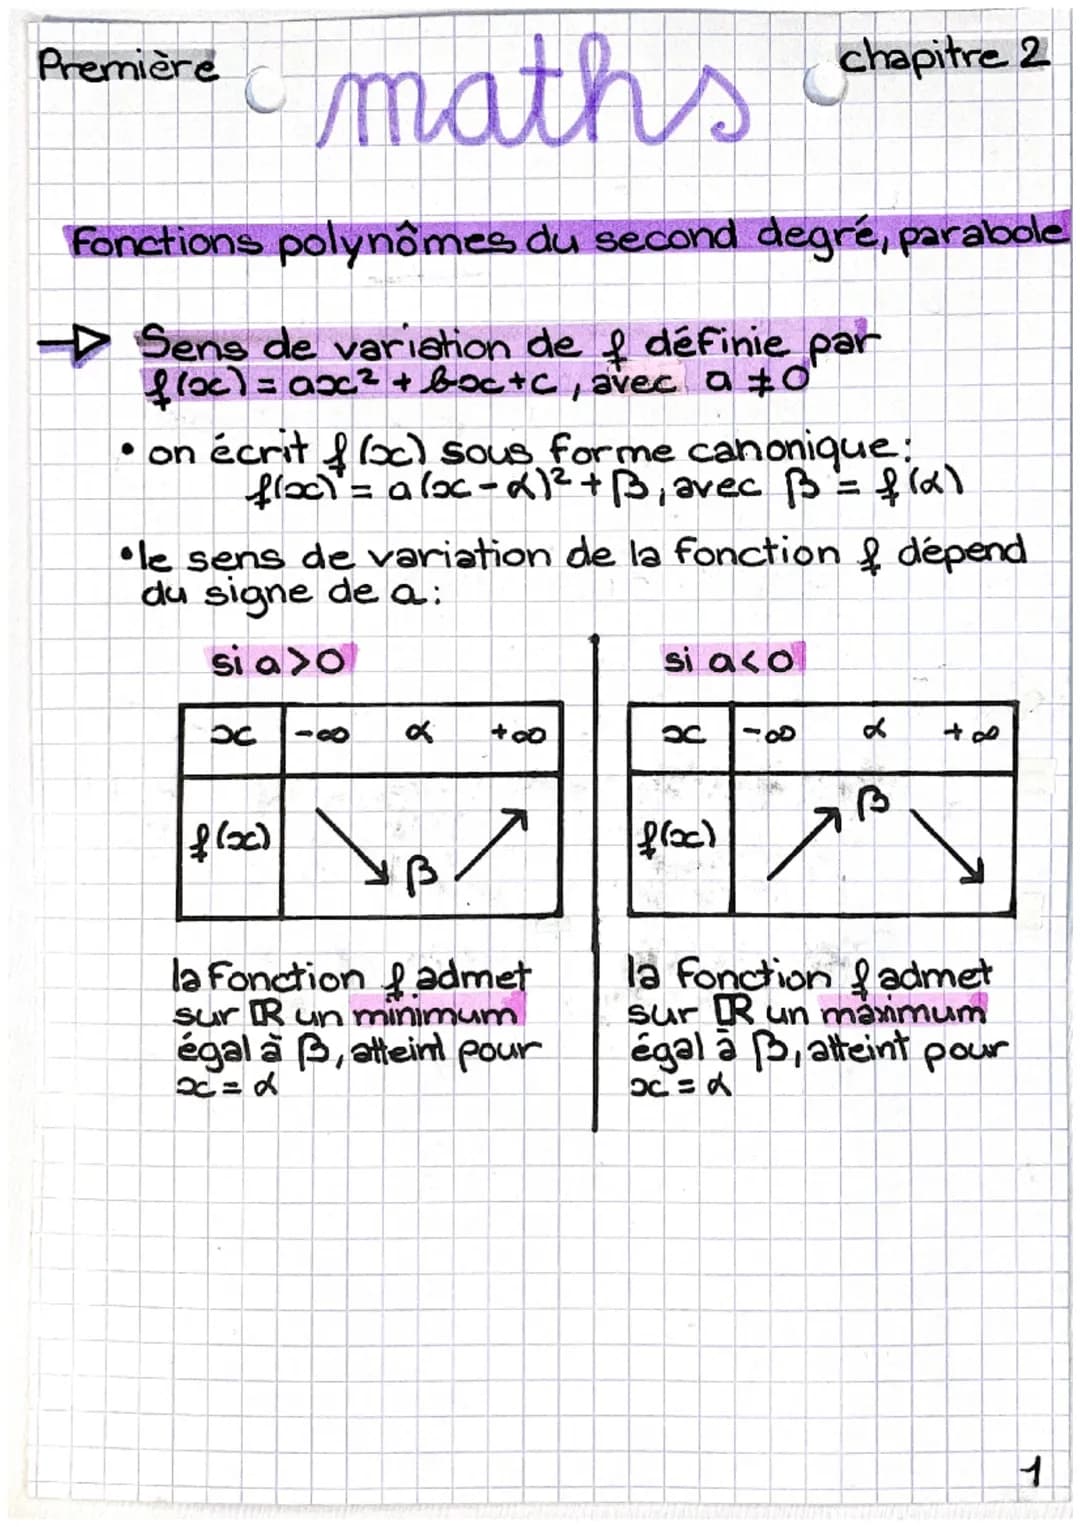 Première
maths
chapitre 2
Fonctions polynômes du second degré, parabole
Sens de variation de f définie par
f(x) = ax² + bx + c, avec a ≠ 0
• on écrit f(x) sous forme canonique:
f(x) = a(x - α)² + β, avec β = f(α)
• le sens de variation de la fonction f dépend
du signe de a:
si a > 0
x -∞ α +∞
f(x) ↘ β ↗
la fonction f admet
sur ℝ un minimum
égal à β, atteint pour
x = α
si a < 0
x -∞ α +∞
f(x) ↗ β ↘
la fonction f admet
sur ℝ un maximum
égal à β, atteint pour
x = α
1